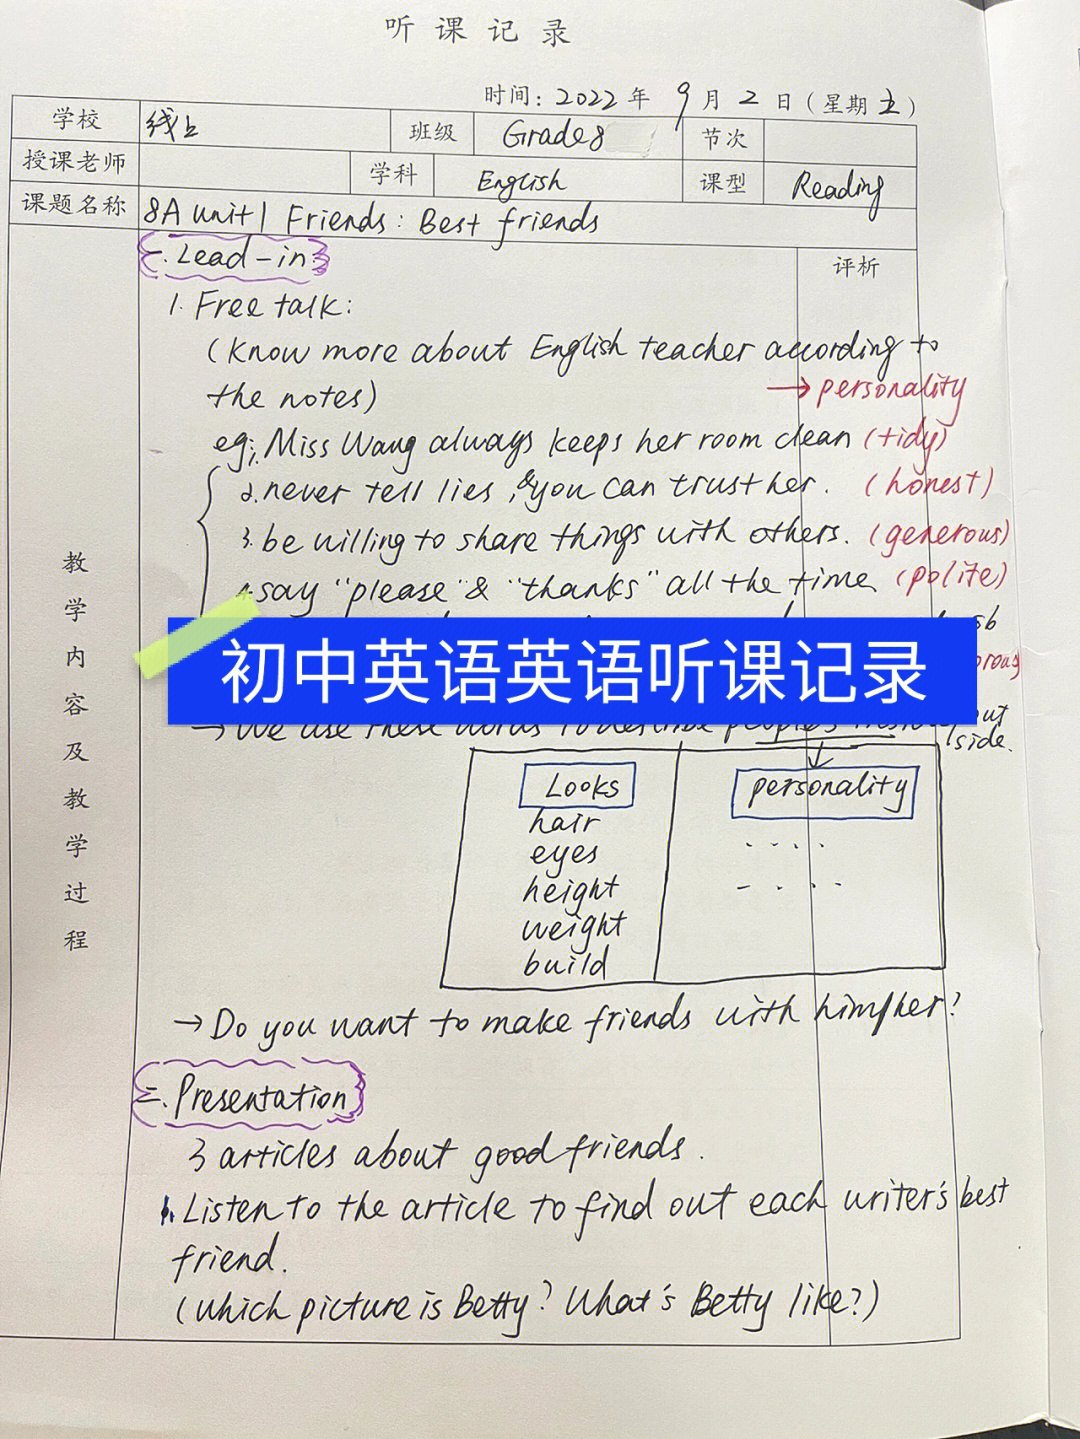 听课记录
时间：2022年 9月2日（星期五）
学校 线上 班级 Grade8 节次
授课老师 学科 English 课型 Reading
课题名称 8A unit1 Friends: Best friends
一. Lead-in:
评析
1. Free talk:
(know more about English teacher according to
the notes)
→ personality
eg: 1. Miss Wang always keeps her room clean (tidy)
2. never tell lies, & you can trust her. (honest)
3. be willing to share things with others. (generous)
4. say "please" & "thanks" all the time (polite)
sb
初中英语英语听课记录
→ We use these words to describe people's
out
side.
Looks personality
hair
eyes
height
weight
build
→ Do you want to make friends with him/her?
二. Presentation
3 articles about good friends.
1. Listen to the article to find out each writer's best
friend.
(which picture is Betty? What's Betty like?)
教学内容及教学过程